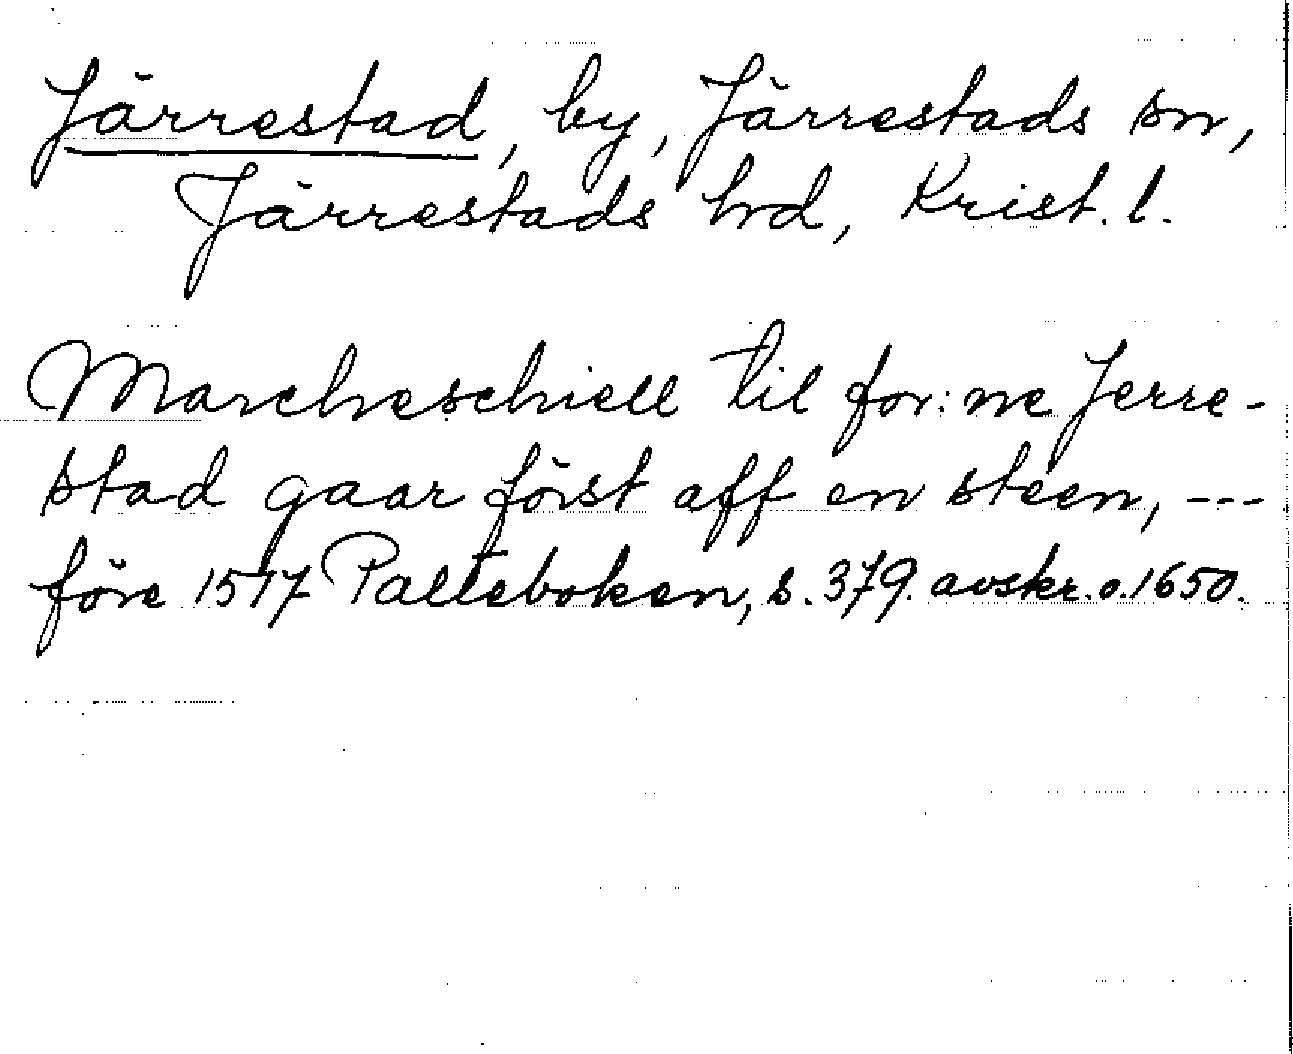 Järrestad, by, Järrestads sn,
Järrestads hrd, Krist. l.
Marcheschiell til for:ne Jerre-
stad gaar först aff en steen, ---
före 1517 Palteboken, s. 379. avskr. o. 1650.